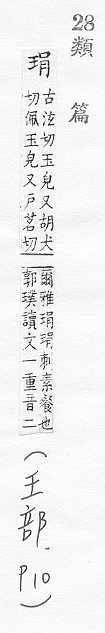 28
類篇
琄
古泫切玉皃又胡犬
切佩玉皃又戸茗切
爾雅琄琄刺素餐也
郭璞讀文一重音二
(王部.
P10)